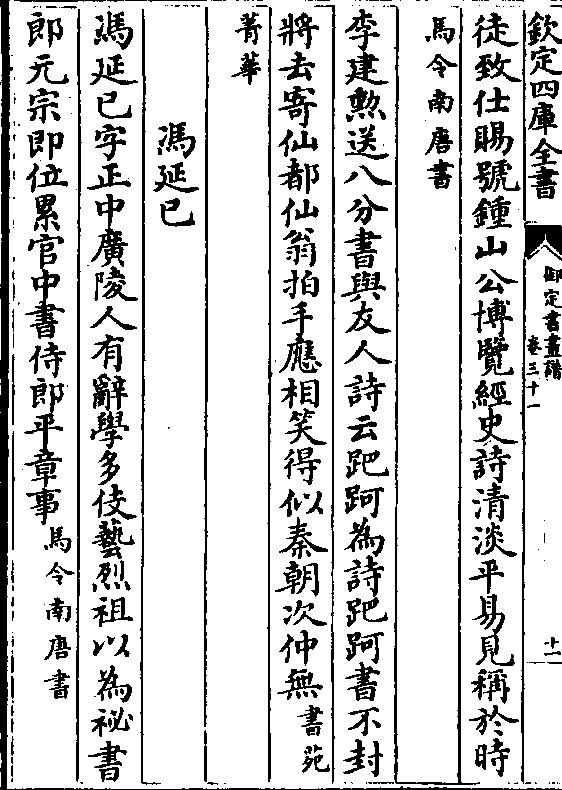 欽定四庫全書
御定書畫譜
卷三十一
十一
徒致仕賜號鍾山公博覽經史詩清淡平易見稱於時
馬令南唐書
李建勲送八分書與友人詩云跁跒為詩跁跒書不封
將去寄仙都仙翁拍手應相笑得似秦朝次仲無書苑
菁華
馮延巳
馮延巳字正中廣陵人有辭學多伎藝烈祖以為祕書
郎元宗即位累官中書侍郎平章事馬令南唐書